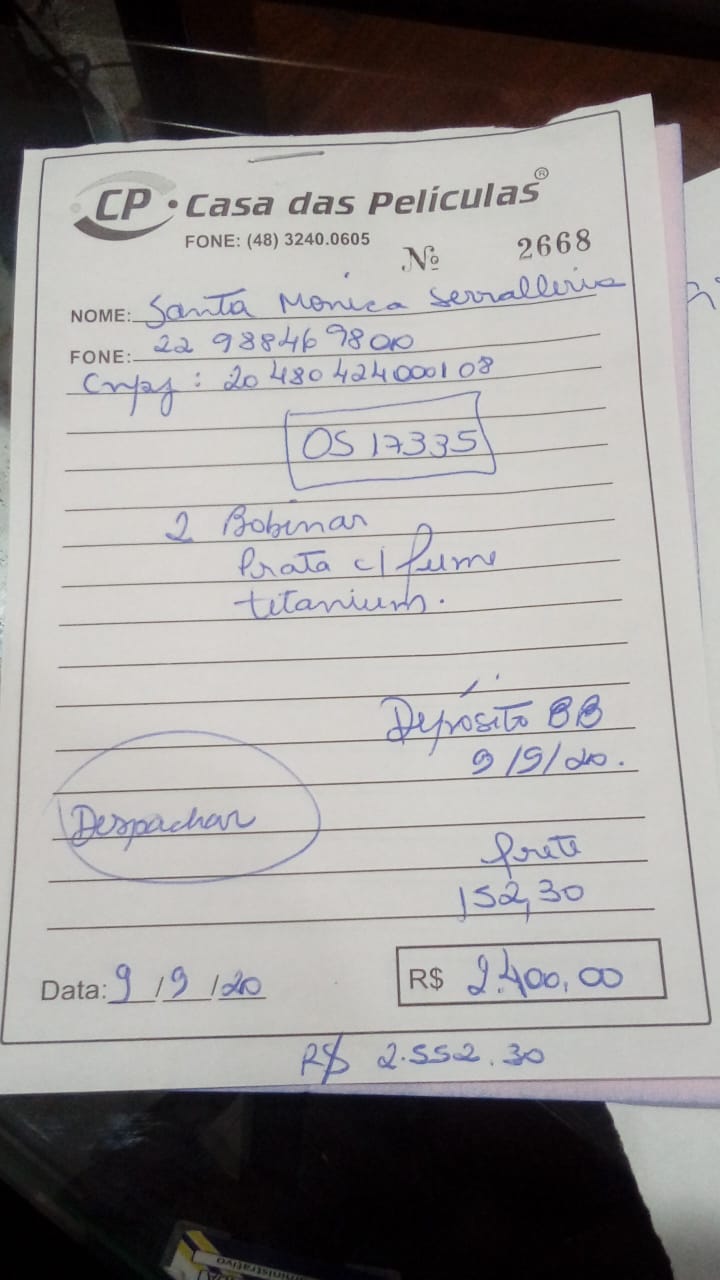 CP • Casa das Películas®
FONE: (48) 3240.0605
Nº 2668
NOME: Santa Mônica Serralleria
FONE: 22 988469800
Cnpj: 20480424000108
OS 17335
2 Bobinar
Prata c/ fume
titanium.
Depósito BB
9/9/20.
Despachar
frete
152,30
Data: 9/9/20
R$ 2.400,00
R$ 2.552.30